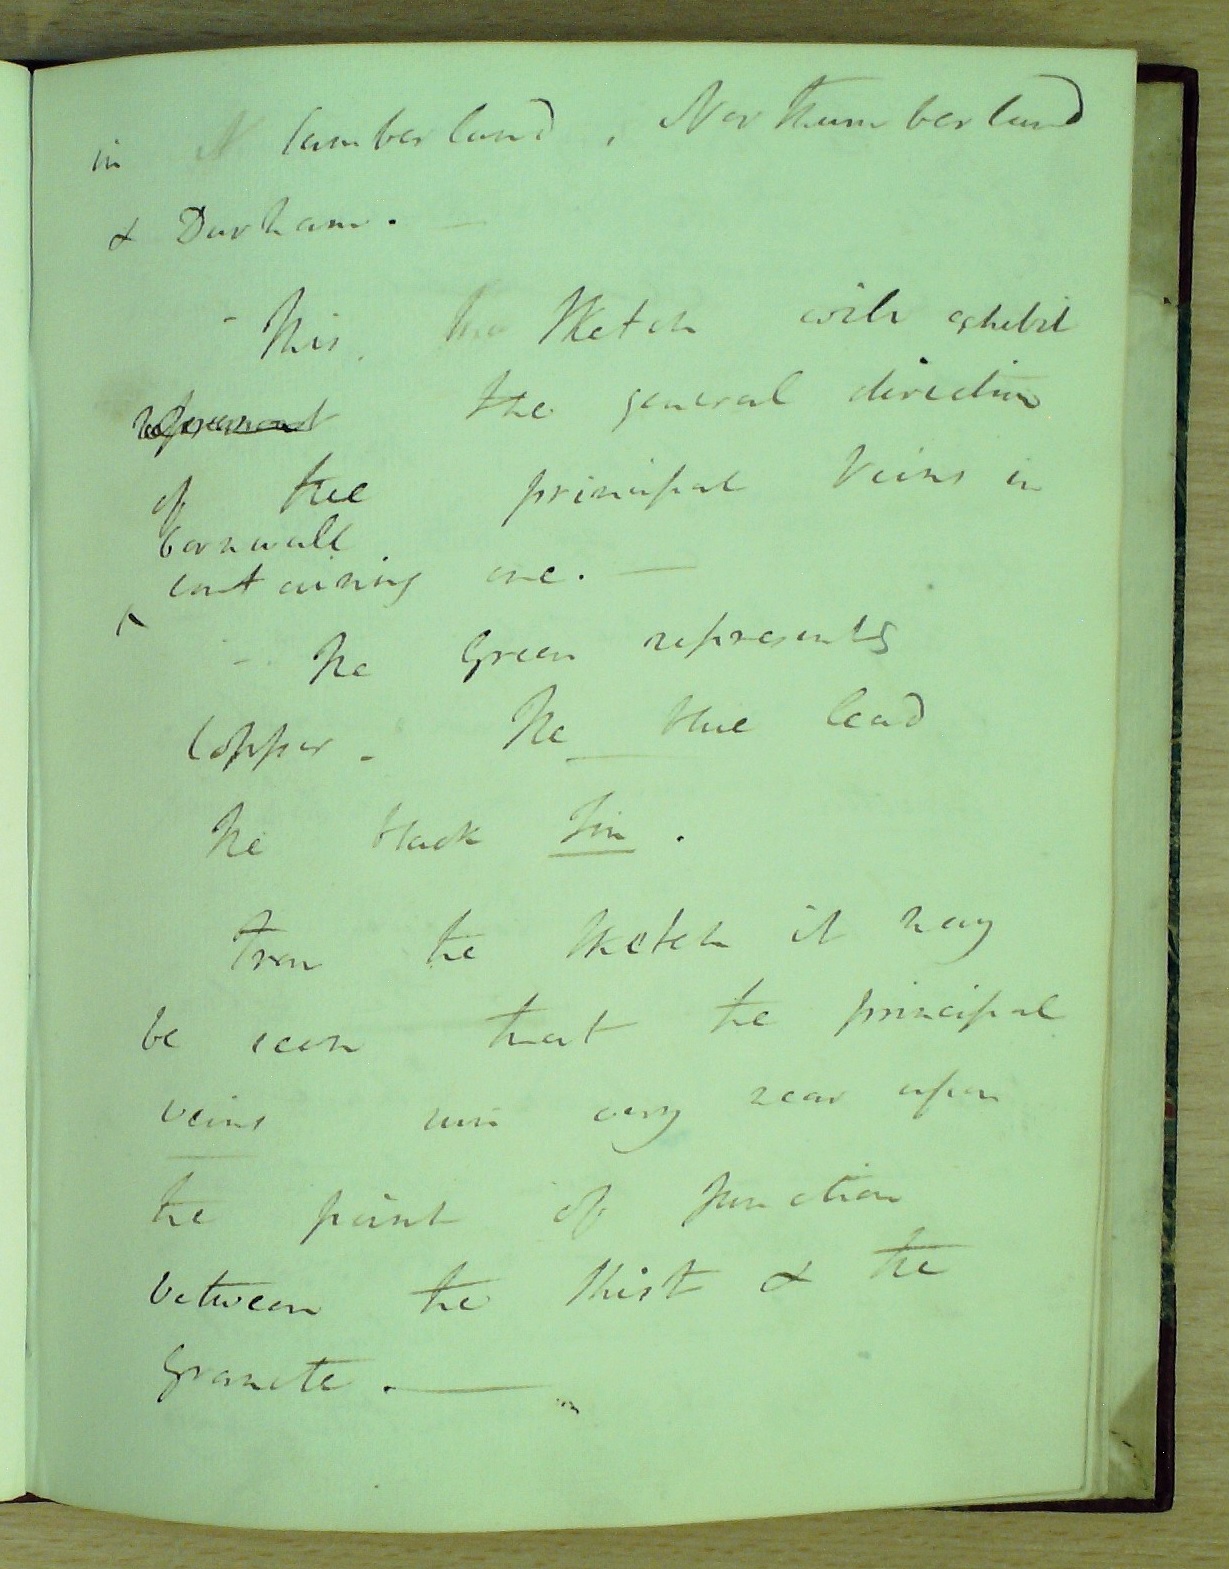 in Cumberland, Northumberland
& Durham. —
- This Sketch will exhibit
represent the general direction
of the principal Veins in
Cornwall
containing ore. —
- The Green represents
Copper - The blue lead
The black Tin.
From the Sketch it may
be seen that the principal
veins run very near upon
the point of junction
between the Shist & the
Granite. —